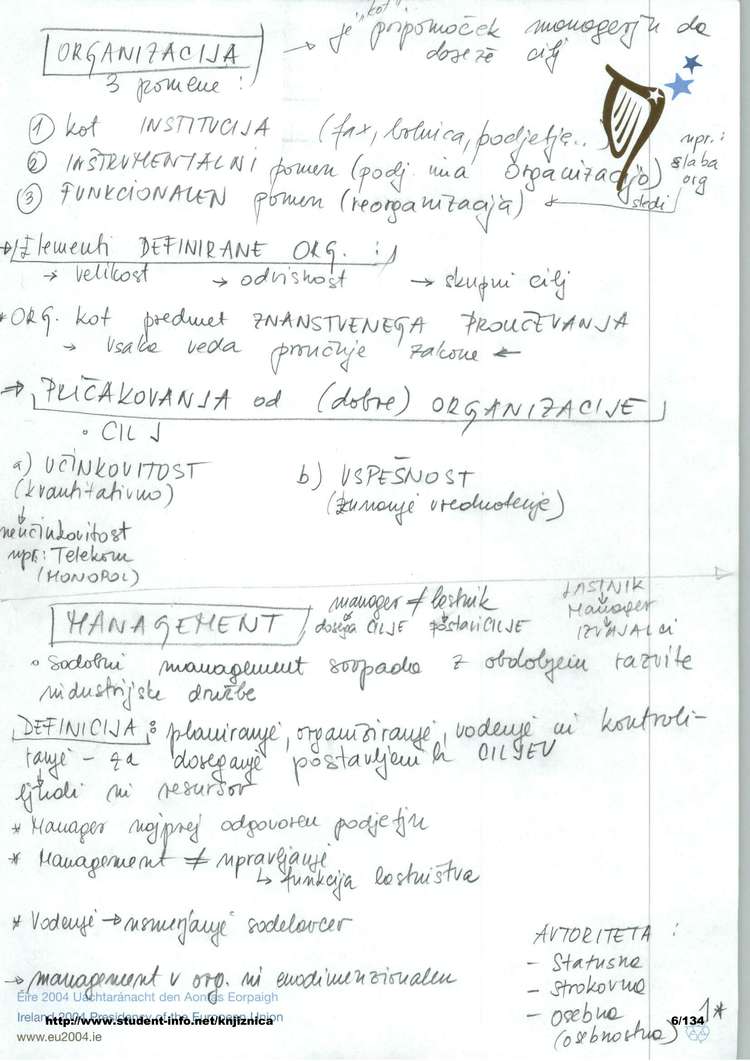 "kot"
ORGANIZACIJA → je pripomoček managerju da
doseže cilj
3 pomene :
① kot INSTITUCIJA (fax, bolnica, podjetje..)
② INŠTRUMENTALNI pomen (podj. ima organizacijo)
npr.:
slaba
org
③ FUNKCIONALEN pomen (reorganizacija) ← sledi
→ Elementi DEFINIRANE ORG. :
→ velikost → odvisnost → skupni cilj
* ORG. kot predmet ZNANSTVENEGA PROUČEVANJA
→ vsaka veda proučuje zakone ←
⇒ PRIČAKOVANJA od (dobre) ORGANIZACIJE
• CILJ
a) UČINKOVITOST b) USPEŠNOST
(kvantitativno) (zunanje vrednotenje)
↓
neučinkovitost
npr.: Telekom
(MONOPOL)
MANAGEMENT
manager ≠ lastnik
dosega CILJE postavi CILJE
LASTNIK
↓
Manager
↓
IZVAJALCI
• Sodobni management sovpada z obdobjem razvite
industrijske družbe
DEFINICIJA : planiranje, organiziranje, vodenje in kontroli-
ranje – za doseganje postavljenih CILJEV
↓
ljudi in resursov
* Manager najprej odgovoren podjetju
* Management ≠ upravljanje
↳ funkcija lastništva
* Vodenje → usmerjanje sodelavcev
→ management v org. ni enodimenzionalen
AVTORITETA :
– statusna
– strokovna
– osebna
(osebnostna)
1*
Éire 2004 Uachtaránacht den Aontas Eorpaigh
Ireland 2004 Presidency of the European Union
http://www.student-info.net/knjiznica
6/134
www.eu2004.ie